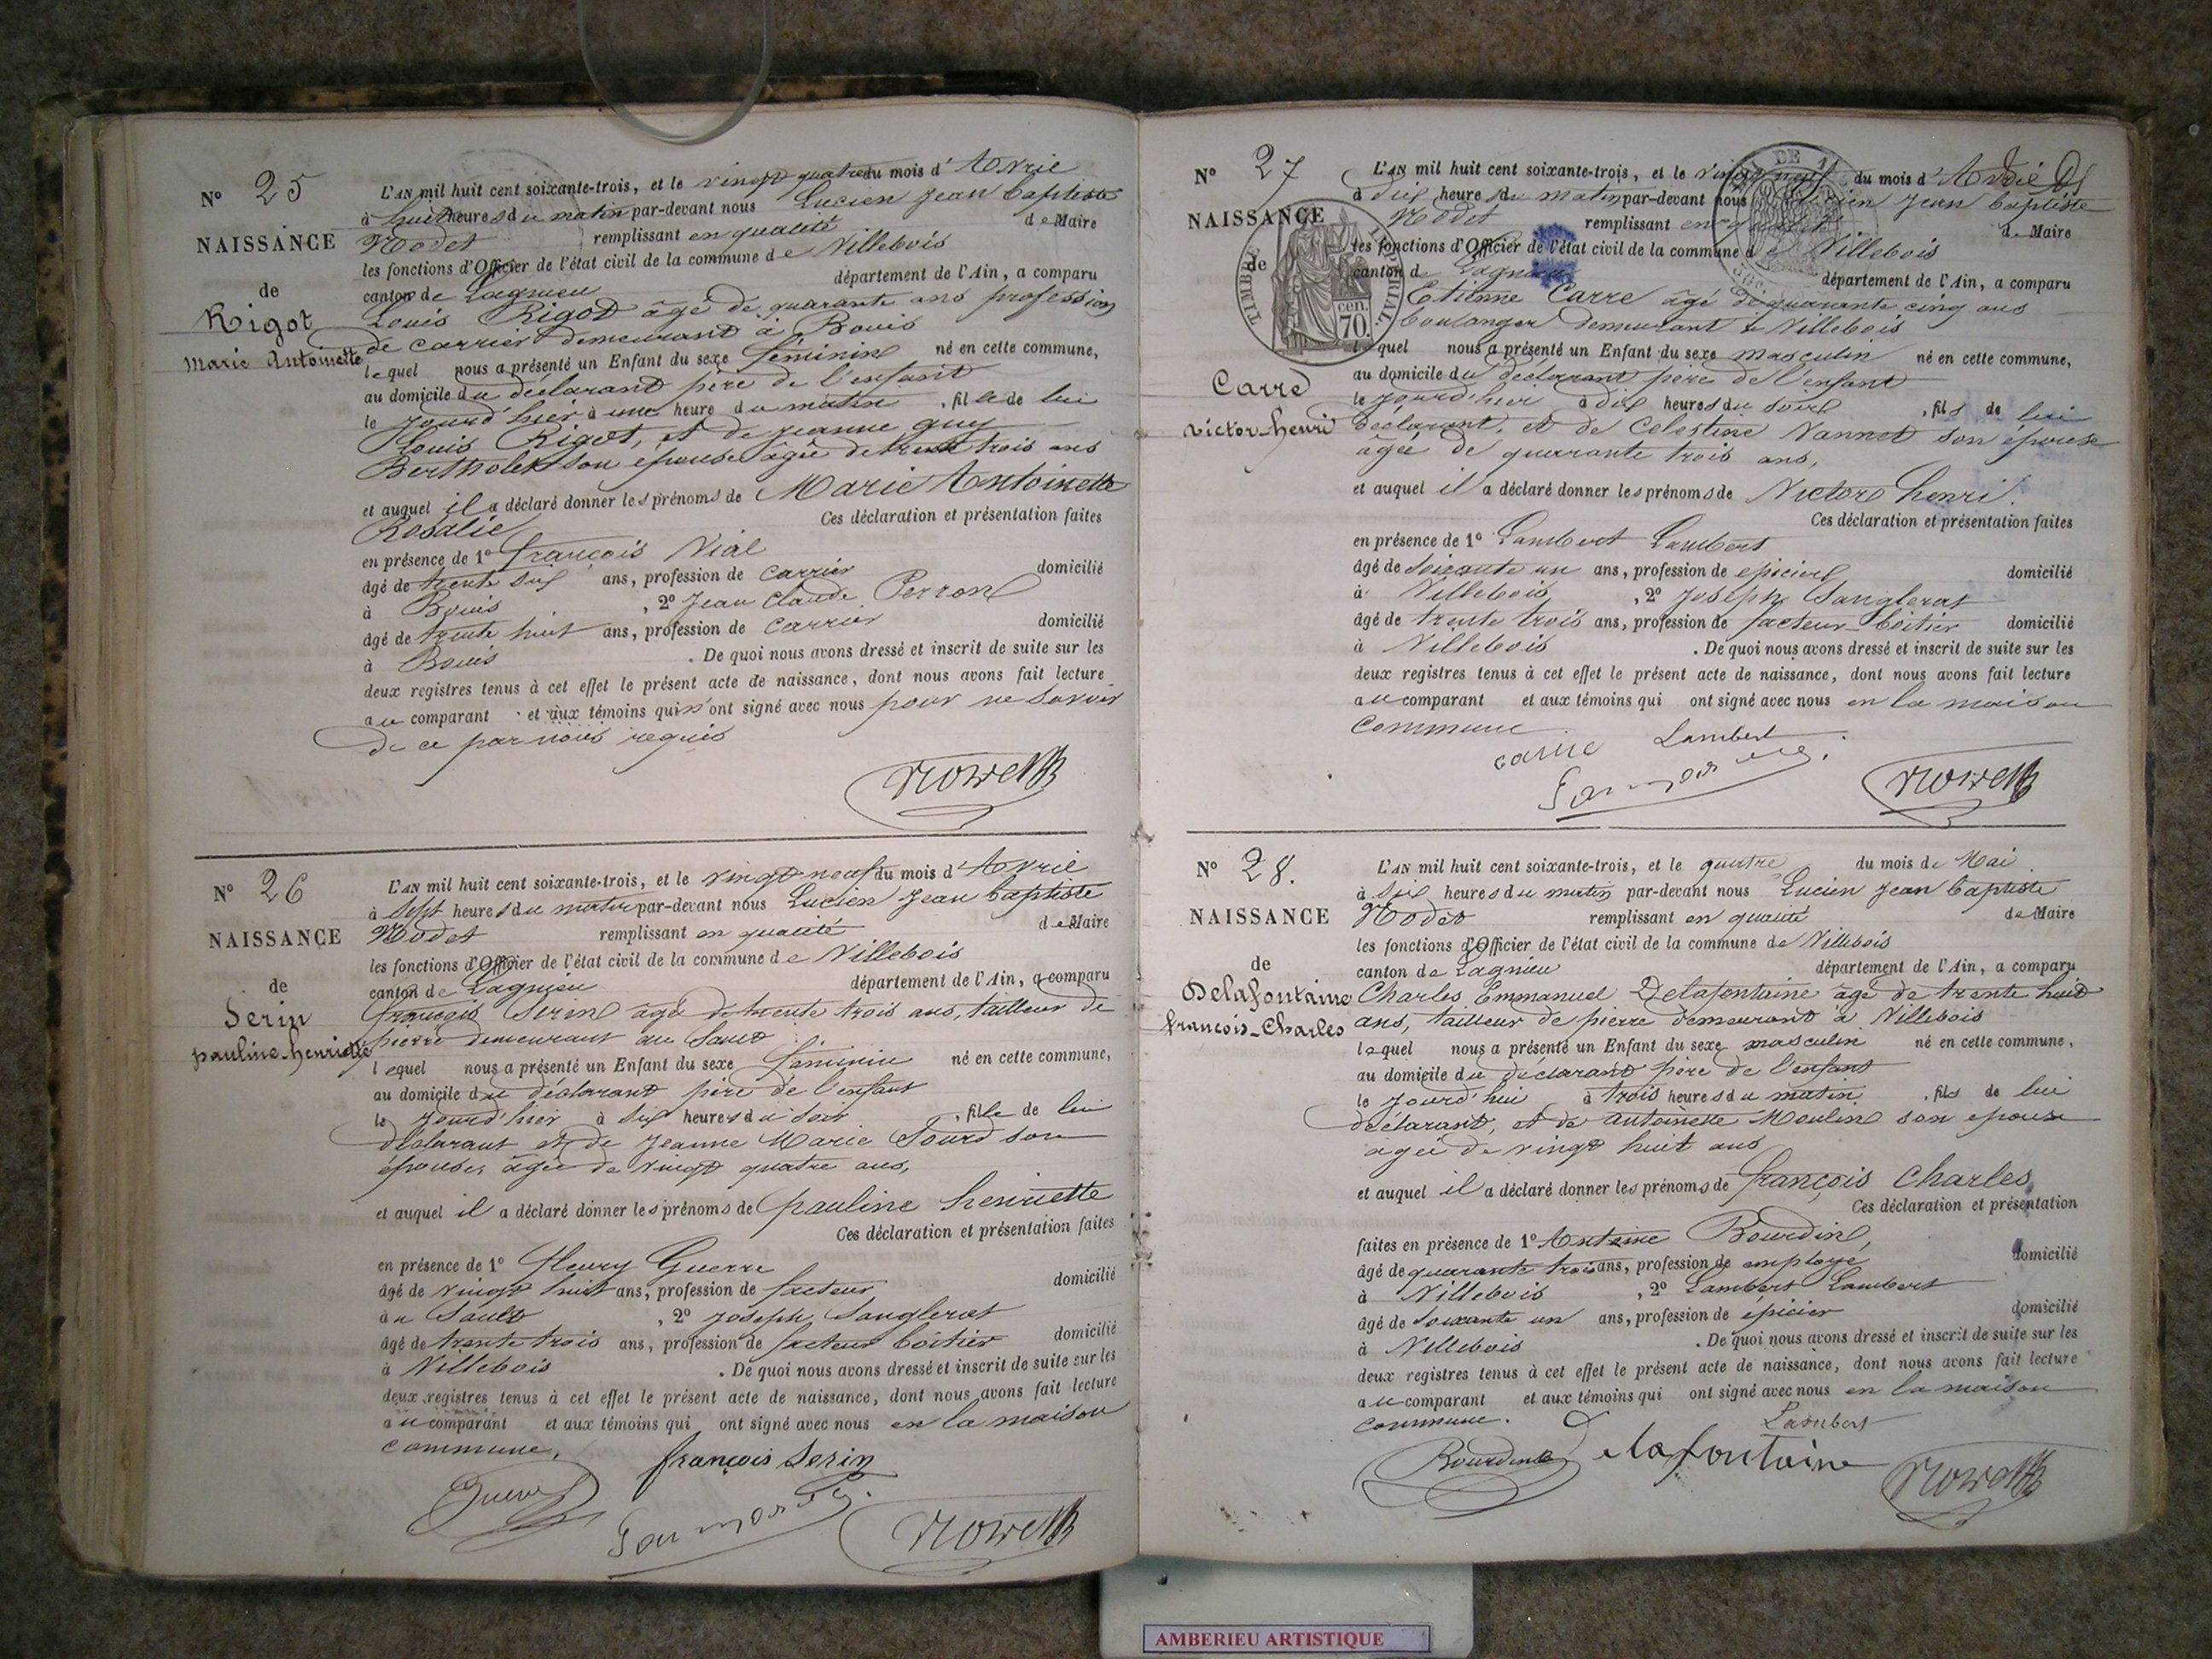 N° 25
NAISSANCE
de
Rigot
Marie Antoinette
L'AN mil huit cent soixante-trois, et le vingt quatre du mois d'Avril
à huit heures du matin par-devant nous Lucien Jean Baptiste
Nodet remplissant en qualité de Maire
les fonctions d'Officier de l'état civil de la commune de Villebois
canton de Lagnieu département de l'Ain, a comparu
Louis Rigot âgé de quarante ans profession
de carrier demeurant à Bouis
lequel nous a présenté un Enfant du sexe féminin né en cette commune,
au domicile du déclarant père de l'enfant
le jourd'hier à une heure du matin, fille de lui
Louis Rigot, et de Jeanne Guy
Bertholet son épouse âgée de trente trois ans
et auquel il a déclaré donner les prénoms de Marie Antoinette
Rosalie Ces déclaration et présentation faites
en présence de 1° françois Vial
âgé de trente six ans, profession de carrier domicilié
à Bouis, 2° Jean Claude Perron
âgé de trente huit ans, profession de carrier domicilié
à Bouis. De quoi nous avons dressé et inscrit de suite sur les
deux registres tenus à cet effet le présent acte de naissance, dont nous avons fait lecture
au comparant et aux témoins qui n'ont signé avec nous pour ne savoir
de ce par nous requis
N° 26
NAISSANCE
de
Serin
pauline-henriette
L'AN mil huit cent soixante-trois, et le vingt neuf du mois d'Avril
à sept heures du matin par-devant nous Lucien Jean Baptiste
Nodet remplissant en qualité de Maire
les fonctions d'Officier de l'état civil de la commune de Villebois
canton de Lagnieu département de l'Ain, a comparu
françois Serin âgé de trente trois ans, tailleur de
pierre demeurant au Sault
lequel nous a présenté un Enfant du sexe féminin né en cette commune,
au domicile du déclarant père de l'enfant
le jourd'hier à six heures du soir, fille de lui
déclarant et de Jeanne Marie Sourd son
épouse, âgée de vingt quatre ans,
et auquel il a déclaré donner les prénoms de pauline henriette
Ces déclaration et présentation faites
en présence de 1° fleury Guerre
âgé de vingt huit ans, profession de facteur domicilié
au Sault, 2° Joseph Sanglerat
âgé de trente trois ans, profession de facteur boîtier domicilié
à Villebois. De quoi nous avons dressé et inscrit de suite sur les
deux registres tenus à cet effet le présent acte de naissance, dont nous avons fait lecture
au comparant et aux témoins qui ont signé avec nous en la maison
commune,
françois Serin
N° 27
NAISSANCE
de
Carre
victor-henri
TIMBRE IMPERIAL
70 cen.
L'AN mil huit cent soixante-trois, et le vingt neuf du mois d'Avril
à dix heures du matin par-devant nous Lucien Jean Baptiste
Nodet remplissant en qualité de Maire
les fonctions d'Officier de l'état civil de la commune de Villebois
canton de Lagnieu département de l'Ain, a comparu
Etienne Carre âgé de quarante cinq ans
boulanger demeurant à Villebois
lequel nous a présenté un Enfant du sexe masculin né en cette commune,
au domicile du déclarant père de l'enfant
le jourd'hier à dix heures du soir, fils de lui
déclarant, et de Celestine Vannet son épouse
âgée de quarante trois ans,
et auquel il a déclaré donner les prénoms de Victor henri.
Ces déclaration et présentation faites
en présence de 1° Lambert Lambert
âgé de soixante un ans, profession de epicier domicilié
à Villebois, 2° Joseph Sanglerat
âgé de trente trois ans, profession de facteur-boitier domicilié
à Villebois. De quoi nous avons dressé et inscrit de suite sur les
deux registres tenus à cet effet le présent acte de naissance, dont nous avons fait lecture
au comparant et aux témoins qui ont signé avec nous en la maison
commune
Lambert
N° 28.
NAISSANCE
de
Delafontaine
francois-Charles
L'AN mil huit cent soixante-trois, et le quatre du mois de Mai
à six heures du matin par-devant nous Lucien Jean Baptiste
Nodet remplissant en qualité de Maire
les fonctions d'Officier de l'état civil de la commune de Villebois
canton de Lagnieu département de l'Ain, a comparu
Charles Emmanuel Delafontaine âgé de trente huit
ans, tailleur de pierre demeurant à Villebois
lequel nous a présenté un Enfant du sexe masculin né en cette commune,
au domicile du déclarant père de l'enfant
le jourd'hui à trois heures du matin, fils de lui
déclarant, et de antoinette Moulin son epouse
agée de vingt huit ans
et auquel il a déclaré donner les prénoms de françois Charles,
Ces déclaration et présentation
faites en présence de 1° Antoine Bourdin,
âgé de quarante trois ans, profession de employé domicilié
à Villebois, 2° Lambert Lambert
âgé de soixante un ans, profession de épicier domicilié
à Villebois. De quoi nous avons dressé et inscrit de suite sur les
deux registres tenus à cet effet le présent acte de naissance, dont nous avons fait lecture
au comparant et aux témoins qui ont signé avec nous en la maison
commune.
Lambert
Bourdin Delafontaine
AMBERIEU ARTISTIQUE